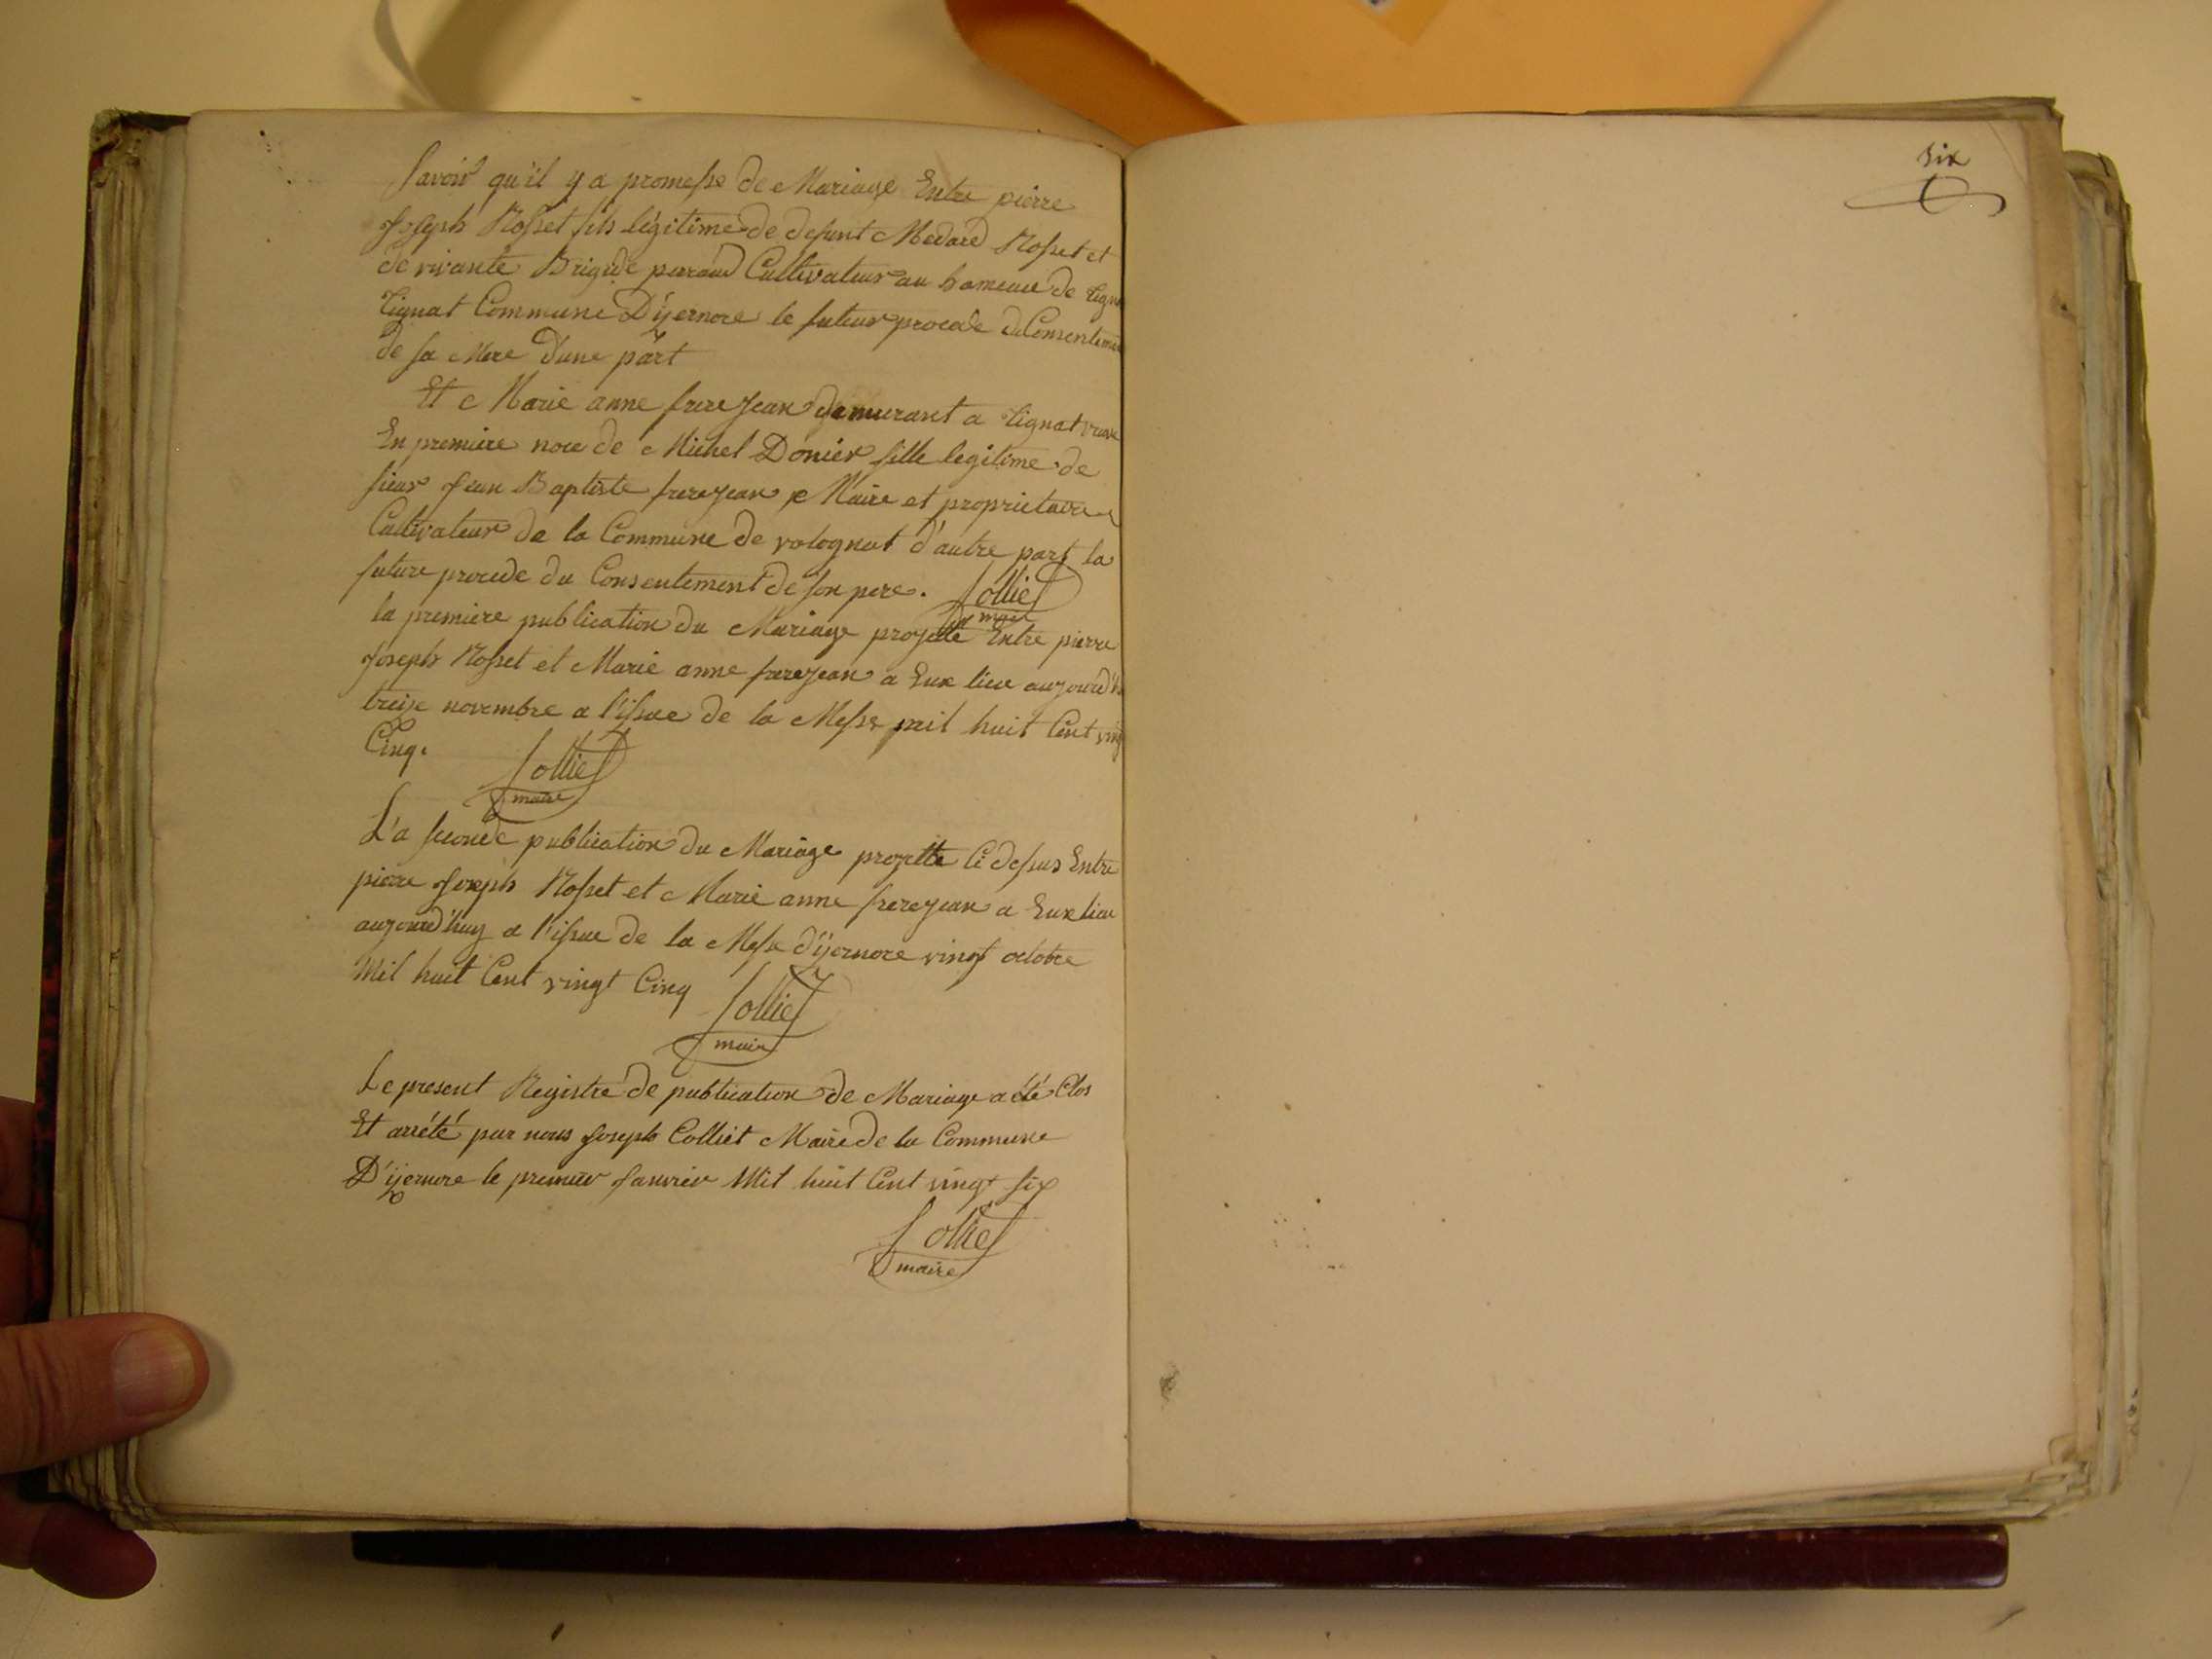 savoir qu'il y a promesse de Mariage Entre pierre
joseph Rosset fils légitime de defunt Medard Rosset et
de vivante Brigide perraud Cultivateur au hameau de
tignat Commune D'yzernore le futur procede du Consentement
de sa Mere D'une part
Et Marie anne frerejean demurant a tignat veuve
En premiere noce de Michel Donier fille legitime de
sieur jean Baptiste frerejean Maire et proprietaire
Cultivateur de la Commune de volognat d'autre part la
future procede du Consentement de son pere. Colliet
maire
la premiere publication du Mariage projetté Entre pierre
joseph Rosset et Marie anne frerejean a Eux lieu aujourd'hui
treize novembre a l'issue de la Messe mil huit Cent vingt
Cinq.
Colliet
maire
L'a seconde publication du Mariage projetté Ci dessus Entre
pierre joseph Rosset et Marie anne frerejean a Eux lieu
aujourd'huy a l'issue de la Messe d'yzernore vingt octobre
Mil huit Cent vingt Cinq
Colliet
maire
Le present Registre de publication de Mariage a été Clos
Et arrété par nous joseph Colliet Maire de la Commune
D'yzernore le premier janvier Mil huit Cent vingt six
Colliet
maire
six